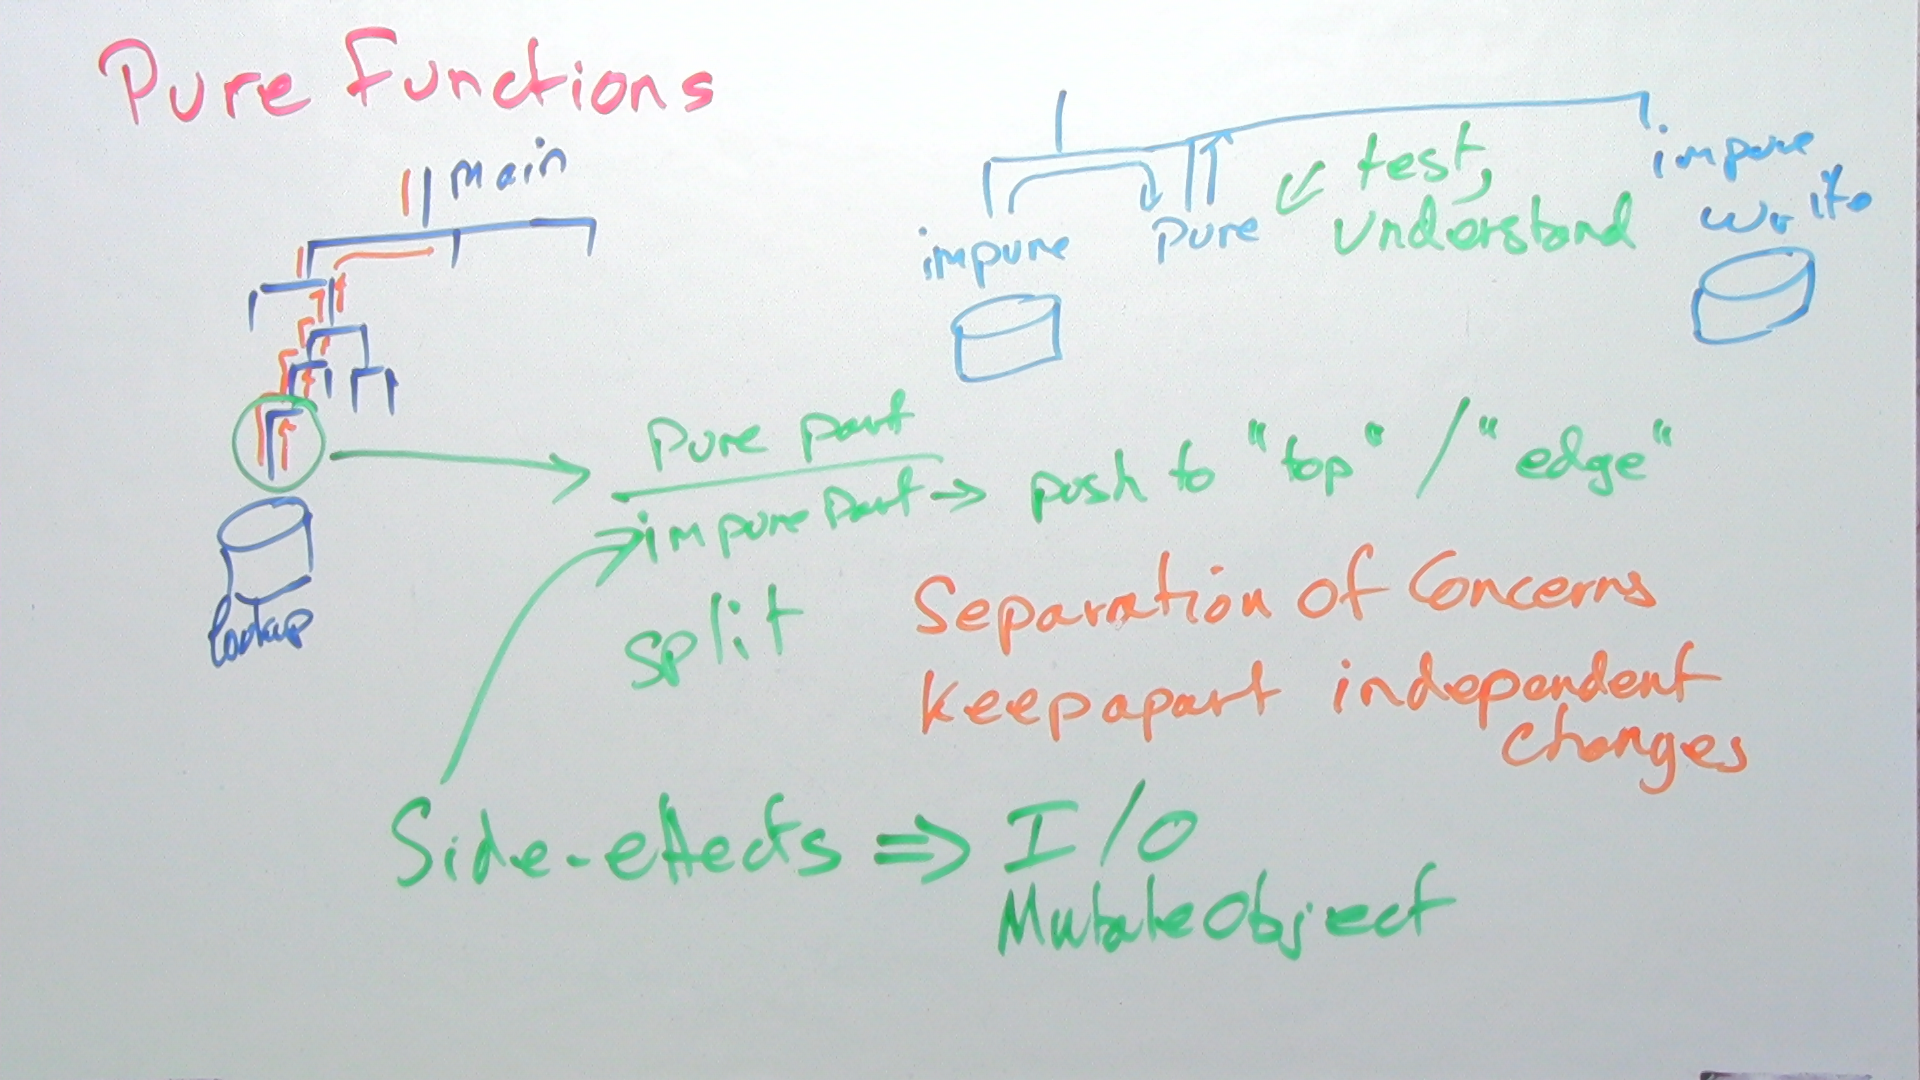 Pure Functions
Main
lookup
impure
Pure
test,
understand
impure
write
Pure part
impure part → push to "top" / "edge"
split
Separation of Concerns
keep apart independent
changes
Side-effects ⇒ I/O
Mutate Object